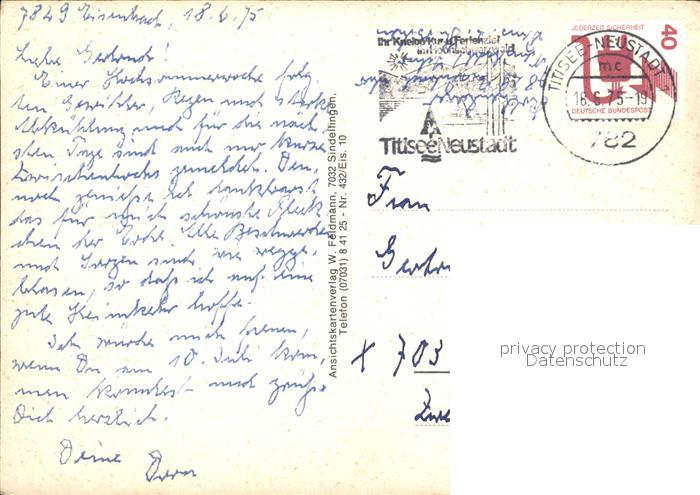 7829 Eisenbach, 18.6.75
Liebe Gertrud!
Einer Hochsommerwoche folg-
ten Gewitter, Regen und starke
Abkühlung und für die näch-
sten Tage sind mir nur kurze
Zwischenhochs gemeldet. Den-
noch genieße ich dankbarst
das für mich schönste Fleck-
chen der Erde. Alle Beschwerden
und Sorgen sind wie wegge-
blasen, so daß ich auf eine
gute Heimkehr hoffe.
Ich würde mich freuen,
wenn Du am 10. Juli kom-
men könntest und grüße
Dich herzlich.
Deine
Ansichtskartenverlag W. Feldmann, 7032 Sindelfingen,
Telefon (07031) 8 41 25 - Nr. 432/Eis. 10
Ihr Kneipp-Kur u. Ferienziel
im Hochschwarzwald
Titisee Neustadt
TITISEE-NEUSTADT
mc
18.6.75-19
782
JEDERZEIT SICHERHEIT
40
DEUTSCHE BUNDESPOST
Frau
x 703
privacy protection
Datenschutz